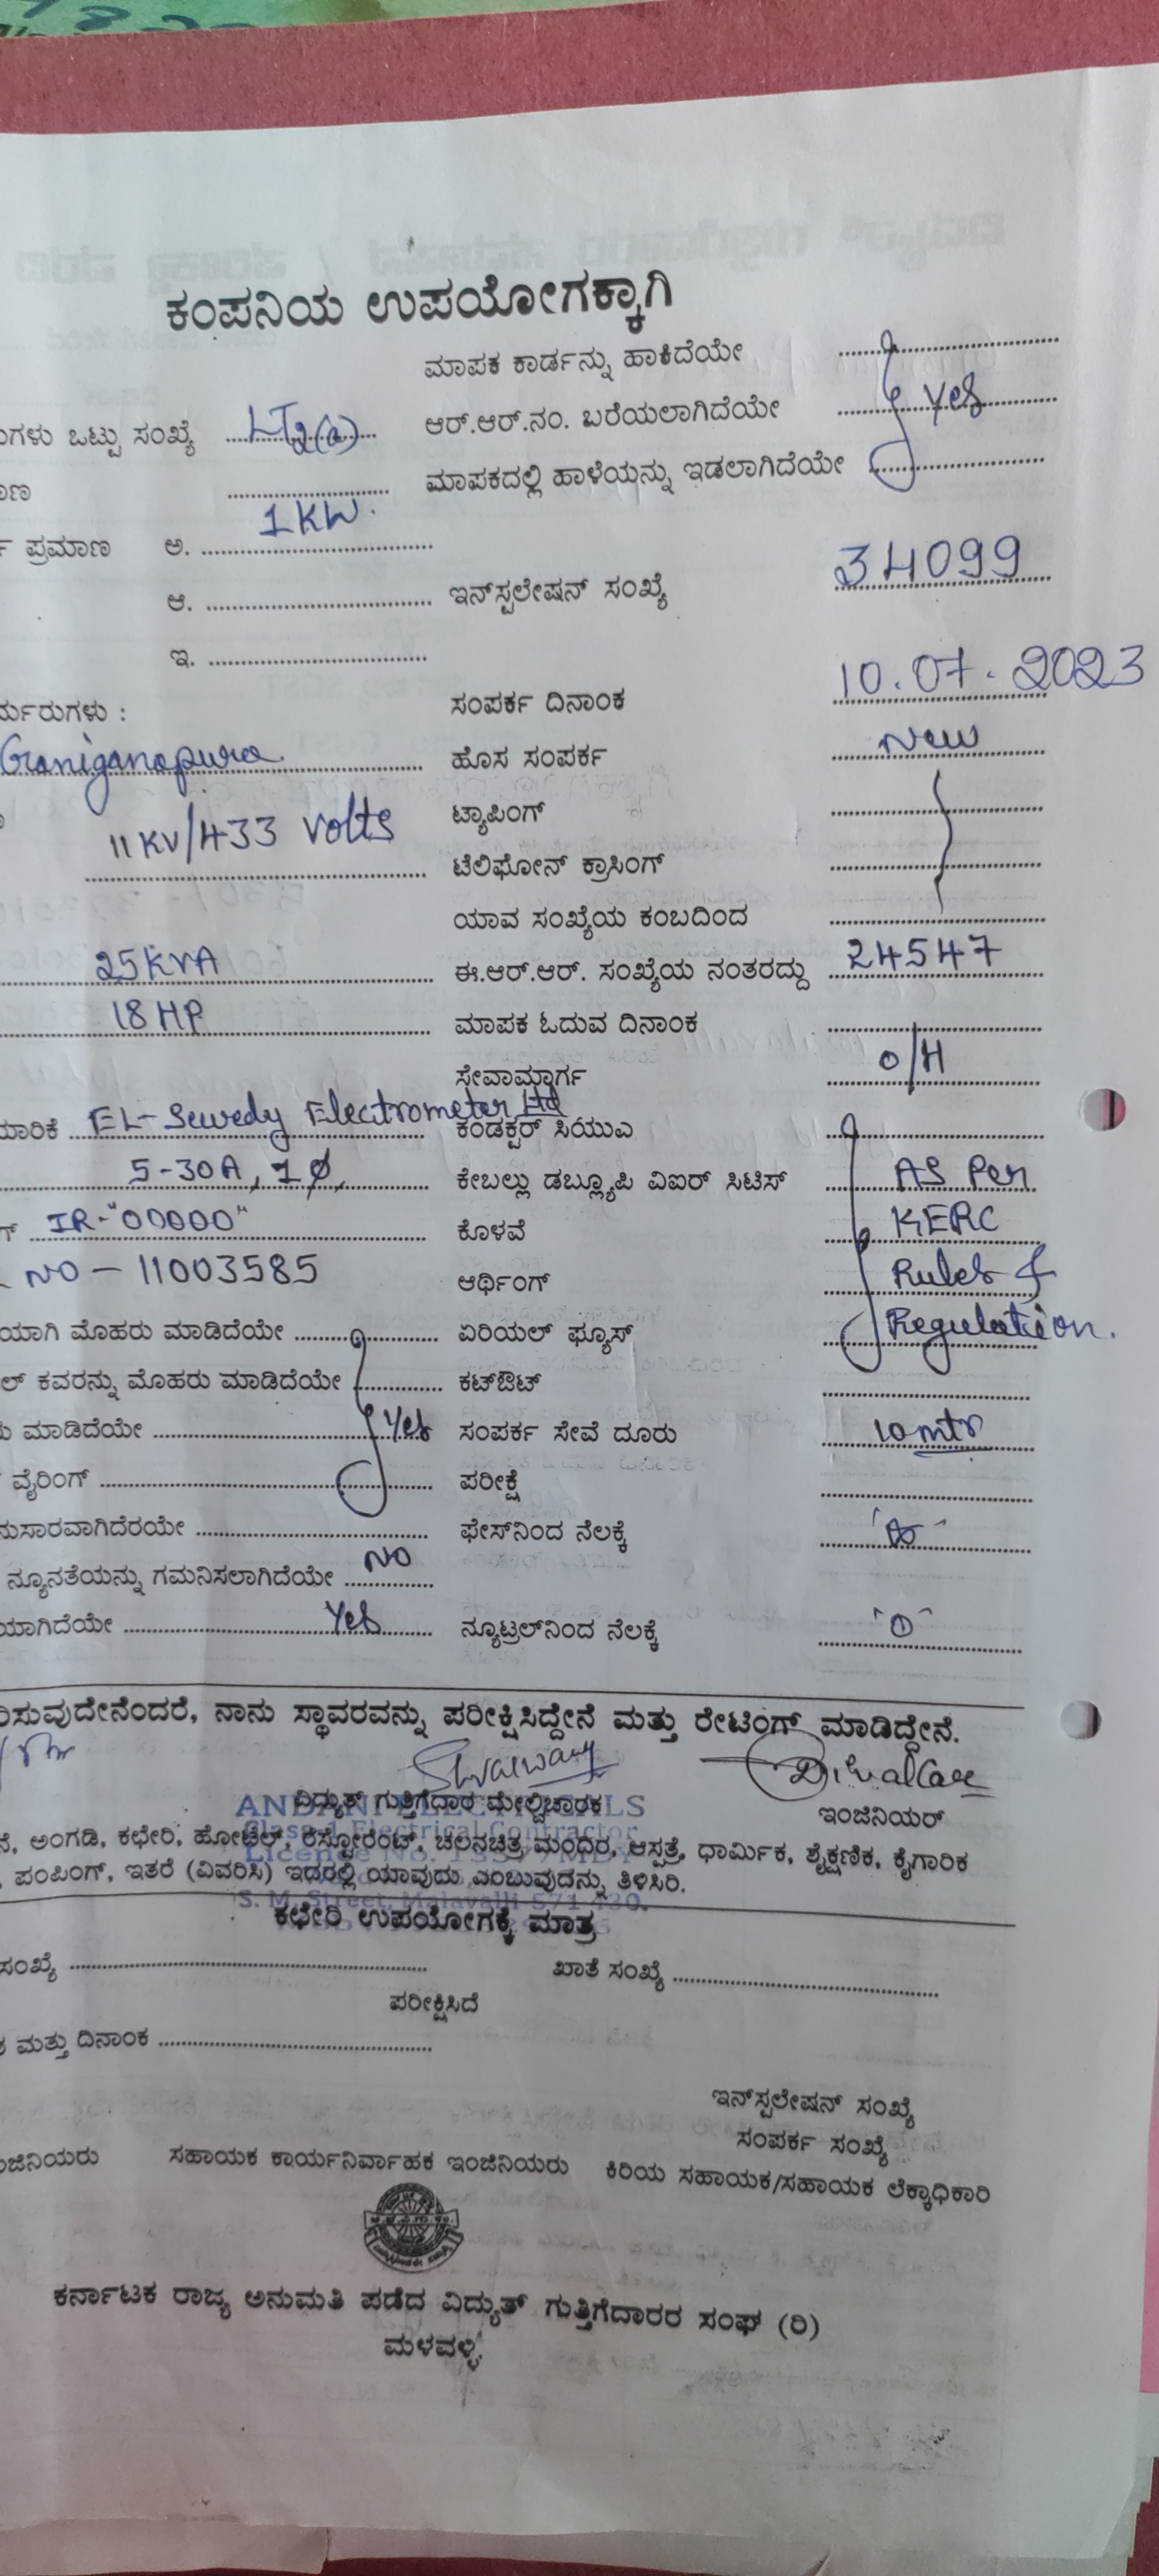 ಕಂಪನಿಯ ಉಪಯೋಗಕ್ಕಾಗಿ
ಮಾಪಕ ಕಾರ್ಡನ್ನು ಹಾಕಿದೆಯೇ
ಗಳು ಒಟ್ಟು ಸಂಖ್ಯೆ LT2(a) ಆರ್.ಆರ್.ನಂ. ಬರೆಯಲಾಗಿದೆಯೇ Yes
ಮಾಪಕದಲ್ಲಿ ಹಾಳೆಯನ್ನು ಇಡಲಾಗಿದೆಯೇ
ಪ್ರಮಾಣ ಅ. 1KW.
ಆ. ಇನ್‌ಸ್ಟಲೇಷನ್ ಸಂಖ್ಯೆ 34099
ಇ.
ರ್ಮರುಗಳು : ಸಂಪರ್ಕ ದಿನಾಂಕ 10.07.2023
Graniganapura ಹೊಸ ಸಂಪರ್ಕ New
11KV/433 volts ಟ್ಯಾಪಿಂಗ್
ಟೆಲಿಫೋನ್ ಕ್ರಾಸಿಂಗ್
ಯಾವ ಸಂಖ್ಯೆಯ ಕಂಬದಿಂದ
25KVA ಈ.ಆರ್.ಆರ್. ಸಂಖ್ಯೆಯ ನಂತರದ್ದು 24547
18HP ಮಾಪಕ ಓದುವ ದಿನಾಂಕ
ಸೇವಾಮಾರ್ಗ O/H
ಮಾರಿಕೆ EL-Sewedy Electrometer Ltd ಕಂಡಕ್ಟರ್ ಸಿಯುಎ
5-30A, 1Ø, ಕೇಬಲ್ಲು ಡಬ್ಲ್ಯೂಪಿ ವಿಐರ್ ಸಿಟಿಸ್ AS Per
IR-"00000" ಕೊಳವೆ KERC
NO-11003585 ಆರ್ಥಿಂಗ್ Rules &
ಯಾಗಿ ಮೊಹರು ಮಾಡಿದೆಯೇ ಏರಿಯಲ್ ಫ್ಯೂಸ್ Regulation.
ಲ್ ಕವರನ್ನು ಮೊಹರು ಮಾಡಿದೆಯೇ ಕಟ್‌ಔಟ್
ಮಾಡಿದೆಯೇ Yes ಸಂಪರ್ಕ ಸೇವೆ ದೂರು 10mtr
ವೈರಿಂಗ್ ಪರೀಕ್ಷೆ
ನುಸಾರವಾಗಿದೆರಯೇ ಫೇಸ್‌ನಿಂದ ನೆಲಕ್ಕೆ
ನ್ಯೂನತೆಯನ್ನು ಗಮನಿಸಲಾಗಿದೆಯೇ NO
ಯಾಗಿದೆಯೇ Yes ನ್ಯೂಟ್ರಲ್‌ನಿಂದ ನೆಲಕ್ಕೆ
ರಿಸುವುದೇನೆಂದರೆ, ನಾನು ಸ್ಥಾವರವನ್ನು ಪರೀಕ್ಷಿಸಿದ್ದೇನೆ ಮತ್ತು ರೇಟಿಂಗ್ ಮಾಡಿದ್ದೇನೆ.
ವಿದ್ಯುತ್ ಗುತ್ತಿಗೆದಾರ ಮೇಲ್ವಿಚಾರಕ ಇಂಜಿನಿಯರ್
ನೆ, ಅಂಗಡಿ, ಕಛೇರಿ, ಹೋಟೆಲ್, ರೆಸ್ಟೋರೆಂಟ್, ಚಲನಚಿತ್ರ ಮಂಧಿರ, ಆಸ್ಪತ್ರೆ, ಧಾರ್ಮಿಕ, ಶೈಕ್ಷಣಿಕ, ಕೈಗಾರಿಕ
ಪಂಪಿಂಗ್, ಇತರೆ (ವಿವರಿಸಿ) ಇದರಲ್ಲಿ ಯಾವುದು ಎಂಬುವುದನ್ನು ತಿಳಿಸಿರಿ.
S. M. Street, Malavalli-571 430.
ಕಛೇರಿ ಉಪಯೋಗಕ್ಕೆ ಮಾತ್ರ
ಸಂಖ್ಯೆ ಖಾತೆ ಸಂಖ್ಯೆ
ಪರೀಕ್ಷಿಸಿದೆ
ಮತ್ತು ದಿನಾಂಕ
ಇನ್‌ಸ್ಟಲೇಷನ್ ಸಂಖ್ಯೆ
ಸಂಪರ್ಕ ಸಂಖ್ಯೆ
ಂಜಿನಿಯರು ಸಹಾಯಕ ಕಾರ್ಯನಿರ್ವಾಹಕ ಇಂಜಿನಿಯರು ಕಿರಿಯ ಸಹಾಯಕ/ಸಹಾಯಕ ಲೆಕ್ಕಾಧಿಕಾರಿ
ಕರ್ನಾಟಕ ರಾಜ್ಯ ಅನುಮತಿ ಪಡೆದ ವಿದ್ಯುತ್ ಗುತ್ತಿಗೆದಾರರ ಸಂಘ (ರಿ)
ಮಳವಳ್ಳಿ